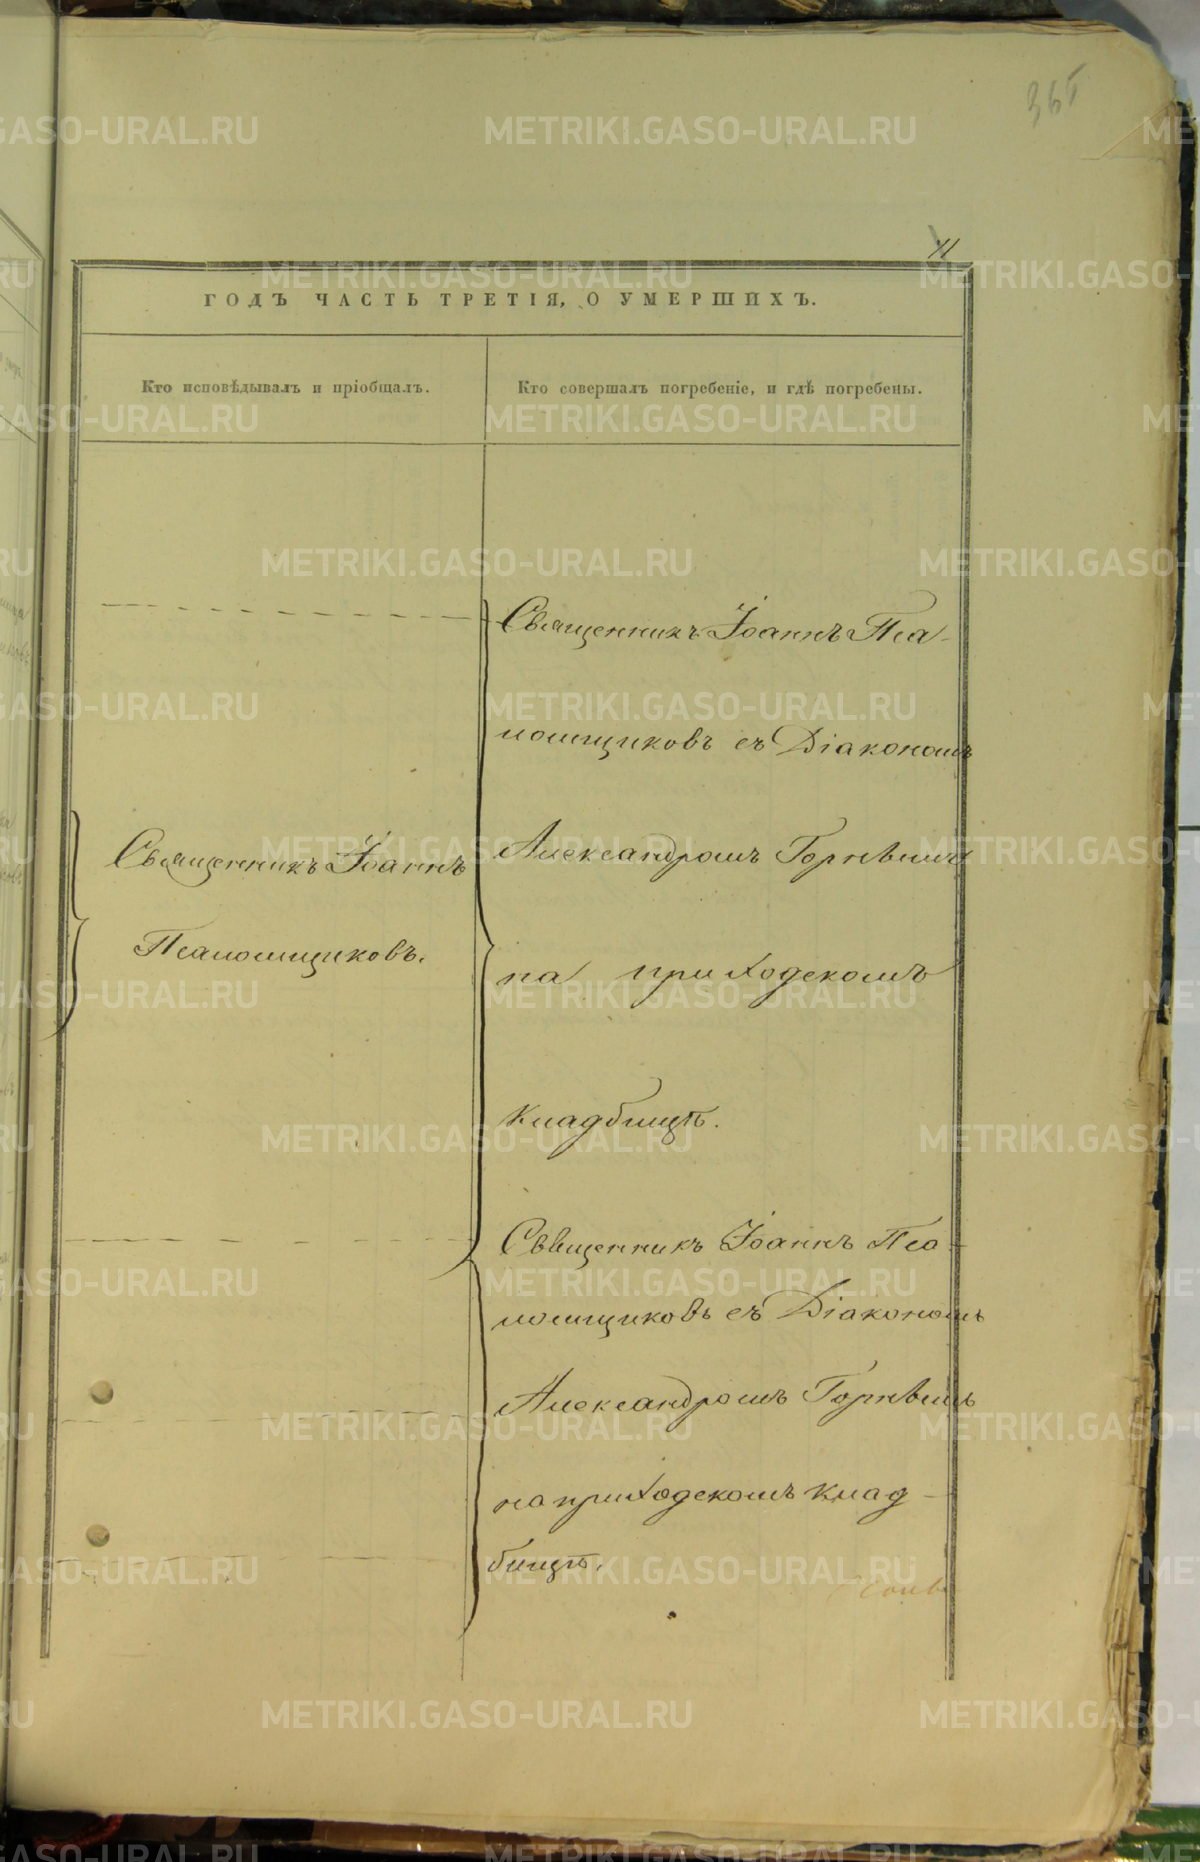 365
11
ГОДЪ ЧАСТЬ ТРЕТІЯ, О УМЕРШИХЪ.
Кто исповѣдывалъ и пріобщалъ.
Кто совершалъ погребеніе, и гдѣ погребены.
Священникъ Іоаннъ
Псаломщиковъ.
Священникъ Іоаннъ Пса-
ломщиковъ съ Діакономъ
Александромъ Горнѣымъ
на приходскомъ
кладбищѣ.
Сввщенникъ Іоаннъ Пса-
ломщиковъ съ Діакономъ
Александромъ Горнѣымъ
на приходскомъ клад-
бищѣ.
METRIKI.GASO-URAL.RU